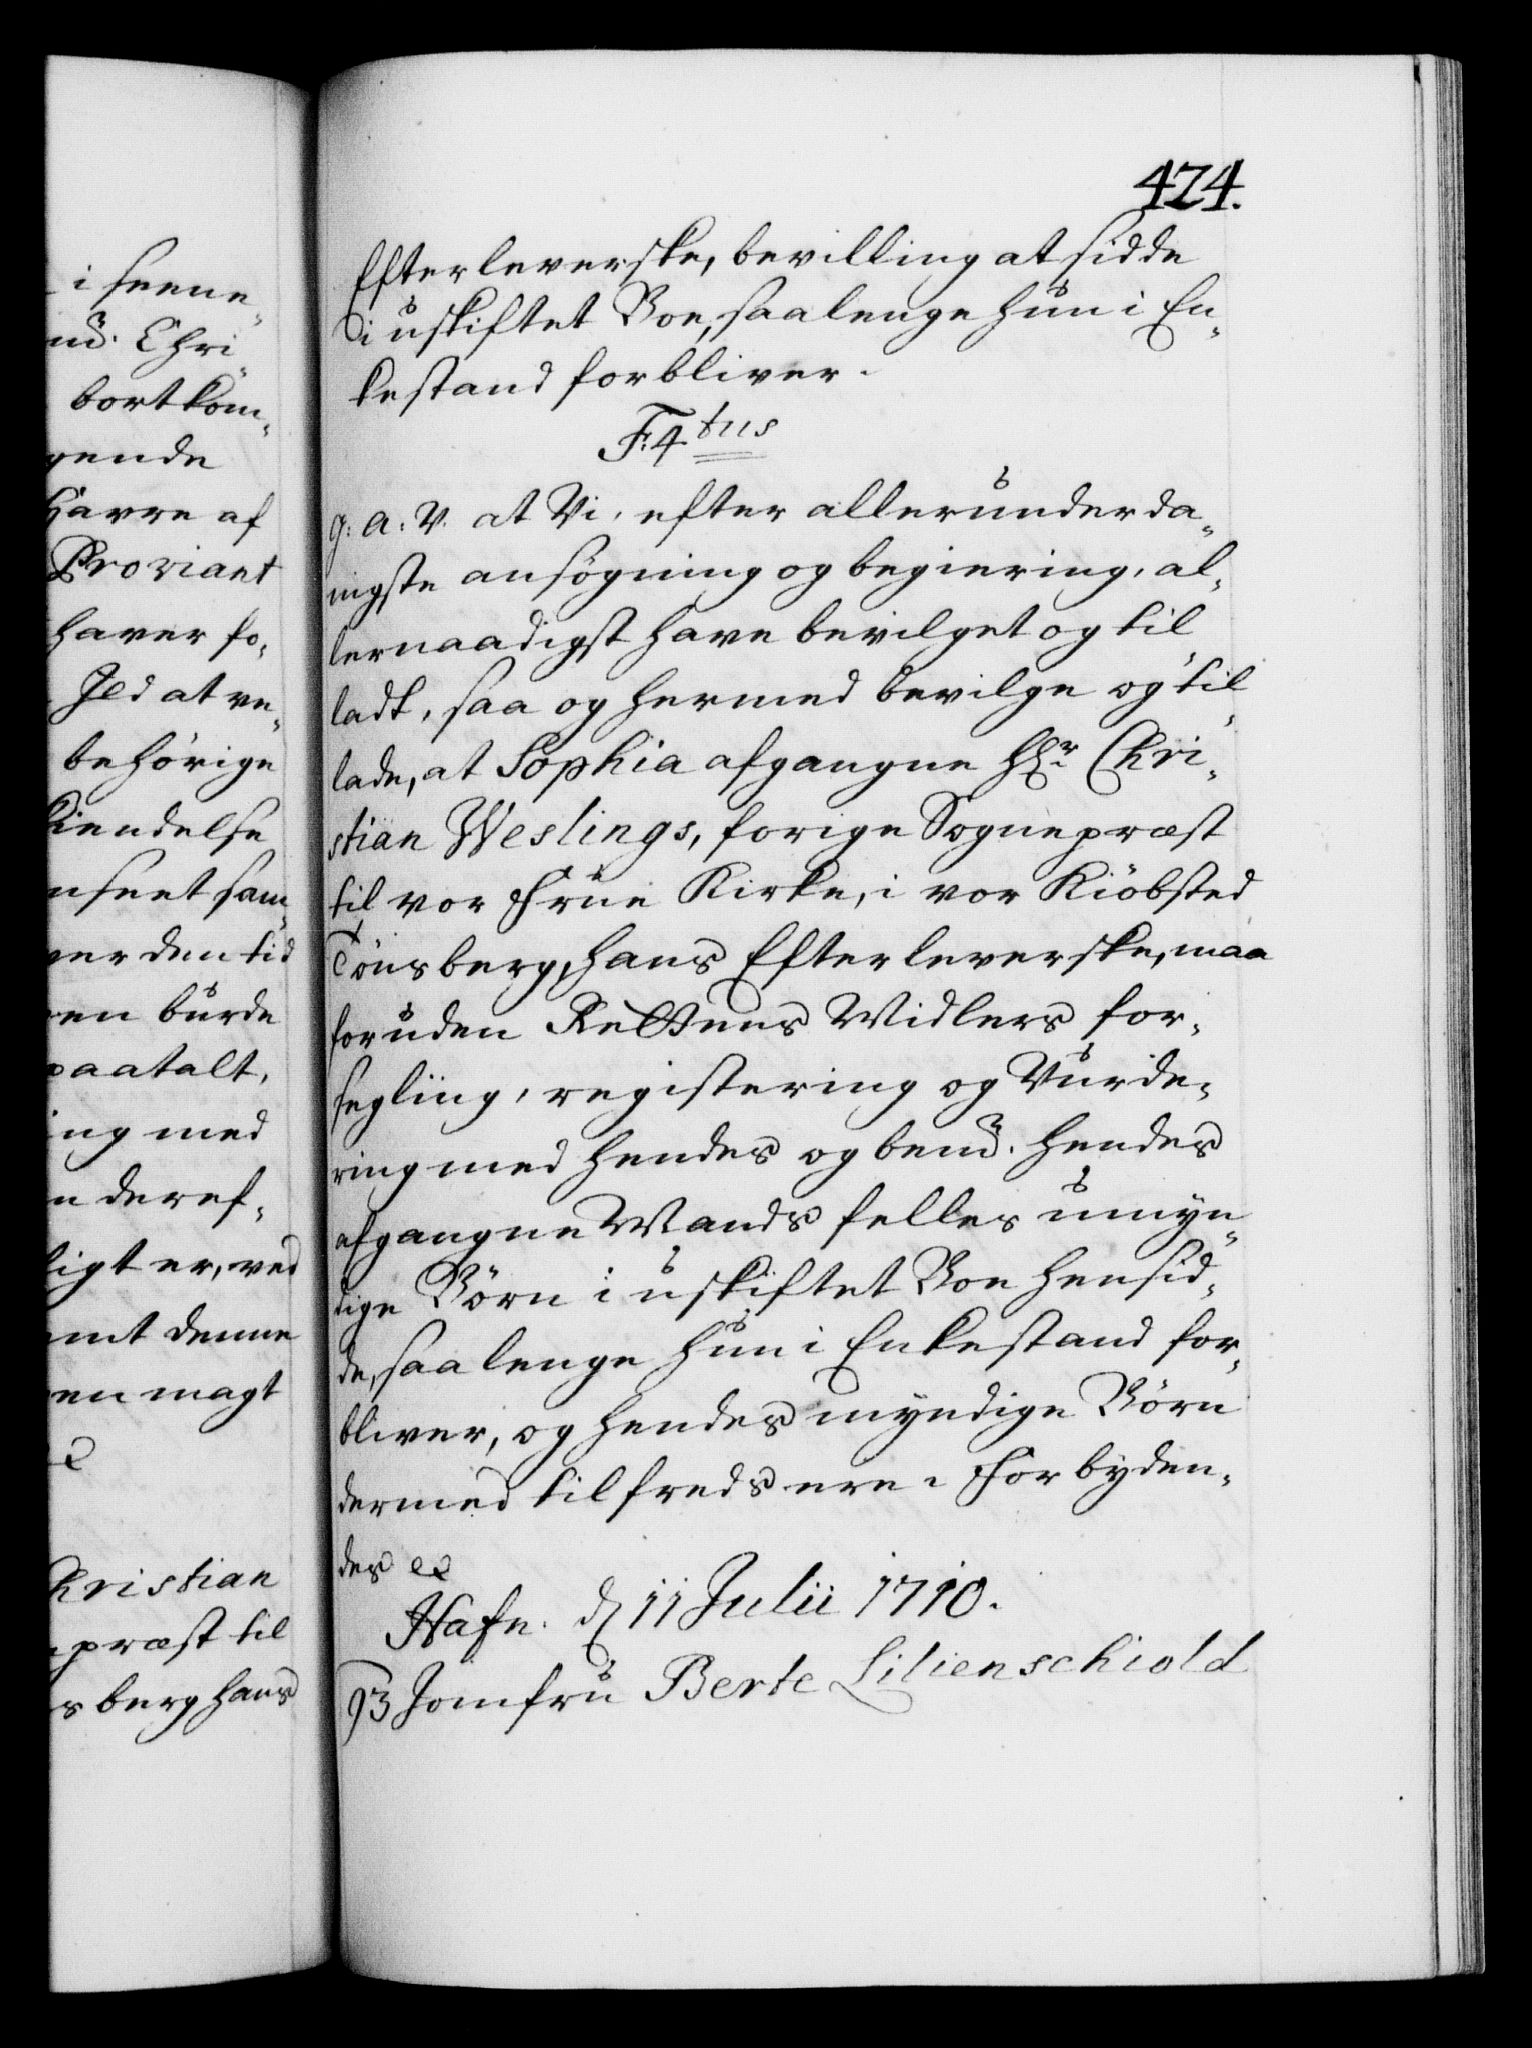 i henne
nd. Chri
bortkom-
gende
Harre af
Proviant
haver fo-
Ild at ve-
behörige
Kiendelse
nseet sam-
ver den tid
en burde
paatalt,
ing med
n deref-
ligt er, ved
mt denne
en magt
Christian
præst til
s berg hans
474.
Efterleverske, bevilling at sidde
i uskiftet Boe, saalenge hun i En-
kestand forbliver.
F: 4.tus
G: A: V. at Vi, efter allerunderda-
nigste ansögning og begiering, al-
lernaadigst have bevilget og til
ladt, saa og hermed bevilge og til-
lade, at Sophia afgangne Hr. Chri-
stian Weslings, forige Sognepræst
til vor Frue Kirke, i vor Kiöbsted
Tönsberg, hans Efterleverske, maa
foruden Rettens Midlers for-
segling, registering og Vurde-
ring med hendes og bemd. hendes
afgangne Mands felles umyn-
dige Börn i uskiftet Boe hensid-
de, saa lenge hun i Enkestand for-
bliver, og hendes myndige Börn
dermed tilfreds ere. Forbyden-
des etc
Hafn. d 11 Julii 1710.
Jomfru Berte Lilienschiold